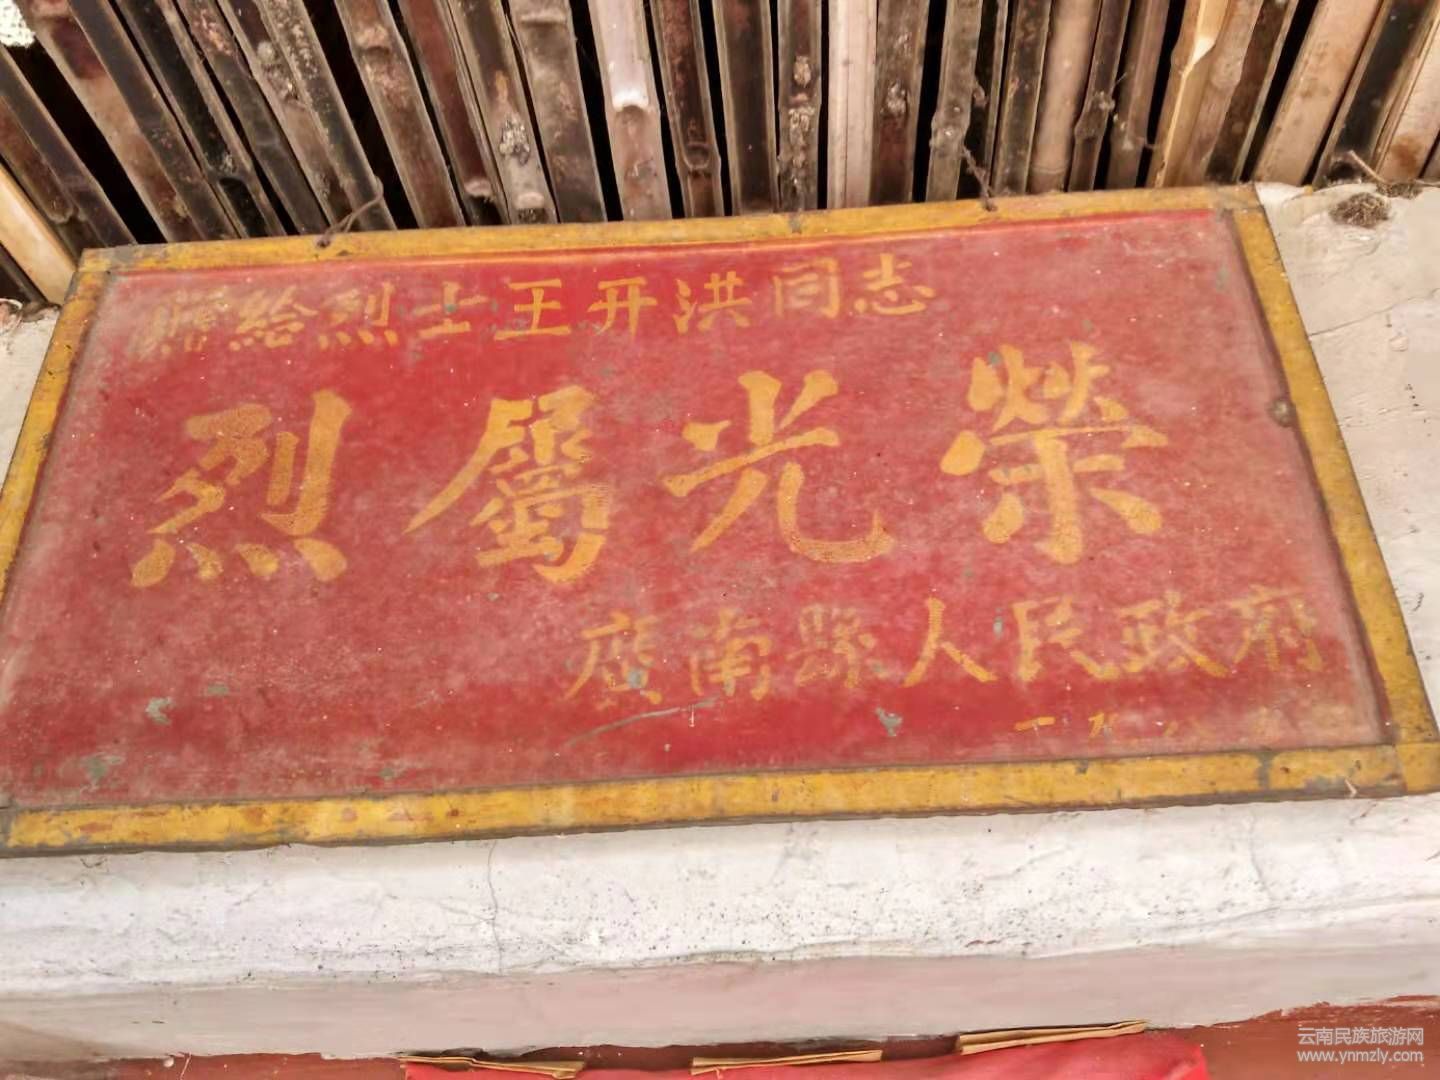 赠给烈士王开洪同志
烈屬光榮
廣南縣人民政府
一九八
云南民族旅游网
www.ynmzly.com